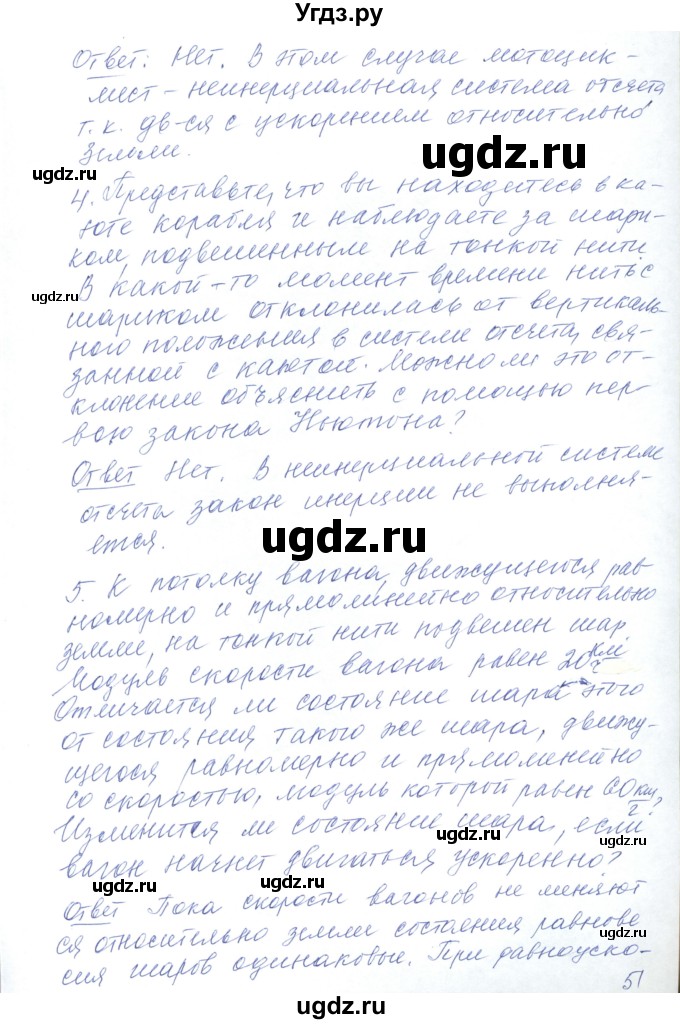 Угдз.ру
Ответ: Нет. В этом случае мотоцик-
лист – неинерциальная система отсчета
т. к. дв-ся с ускорением относительно
Земли.
ugdz.ru
ugdz.ru
4. Представьте, что вы находитесь в ка-
юте корабля и наблюдаете за шари-
ком, подвешенным на тонкой нити
В какой-то момент времени нить с
ugdz.ru
шариком отклонилась от вертикаль-
ного положения в системе отсчета, свя-
занной с каютой. Можно ли это от-
клонение объяснить с помощью пер
вого закона Ньютона?
ugdz.ru
Ответ Нет. В неинерциальной системе
отсчета закон инерции не выполня-
ется.
ugdz.ru
5. К потолку вагона, движущегося рав
номерно и прямолинейно относительно
земле, на тонкой нити подвешен шар
Модуль скорости вагона равен 20 км/ч
ugdz.ru
Отличается ли состояние шара этого
от состояния такого же шара, движу-
щегося равномерно и прямолинейно
со скоростью, модуль которой равен 60 км/ч?
ugdz.ru
Изменится ли состояние шара, если
вагон начнет двигаться ускоренно?
ugdz.ru
ugdz.ru
Ответ Пока скорости вагонов не меняют
ся относительно земли состояния равнове
сия шаров одинаковые. При равноуско-
51
ugdz.ru